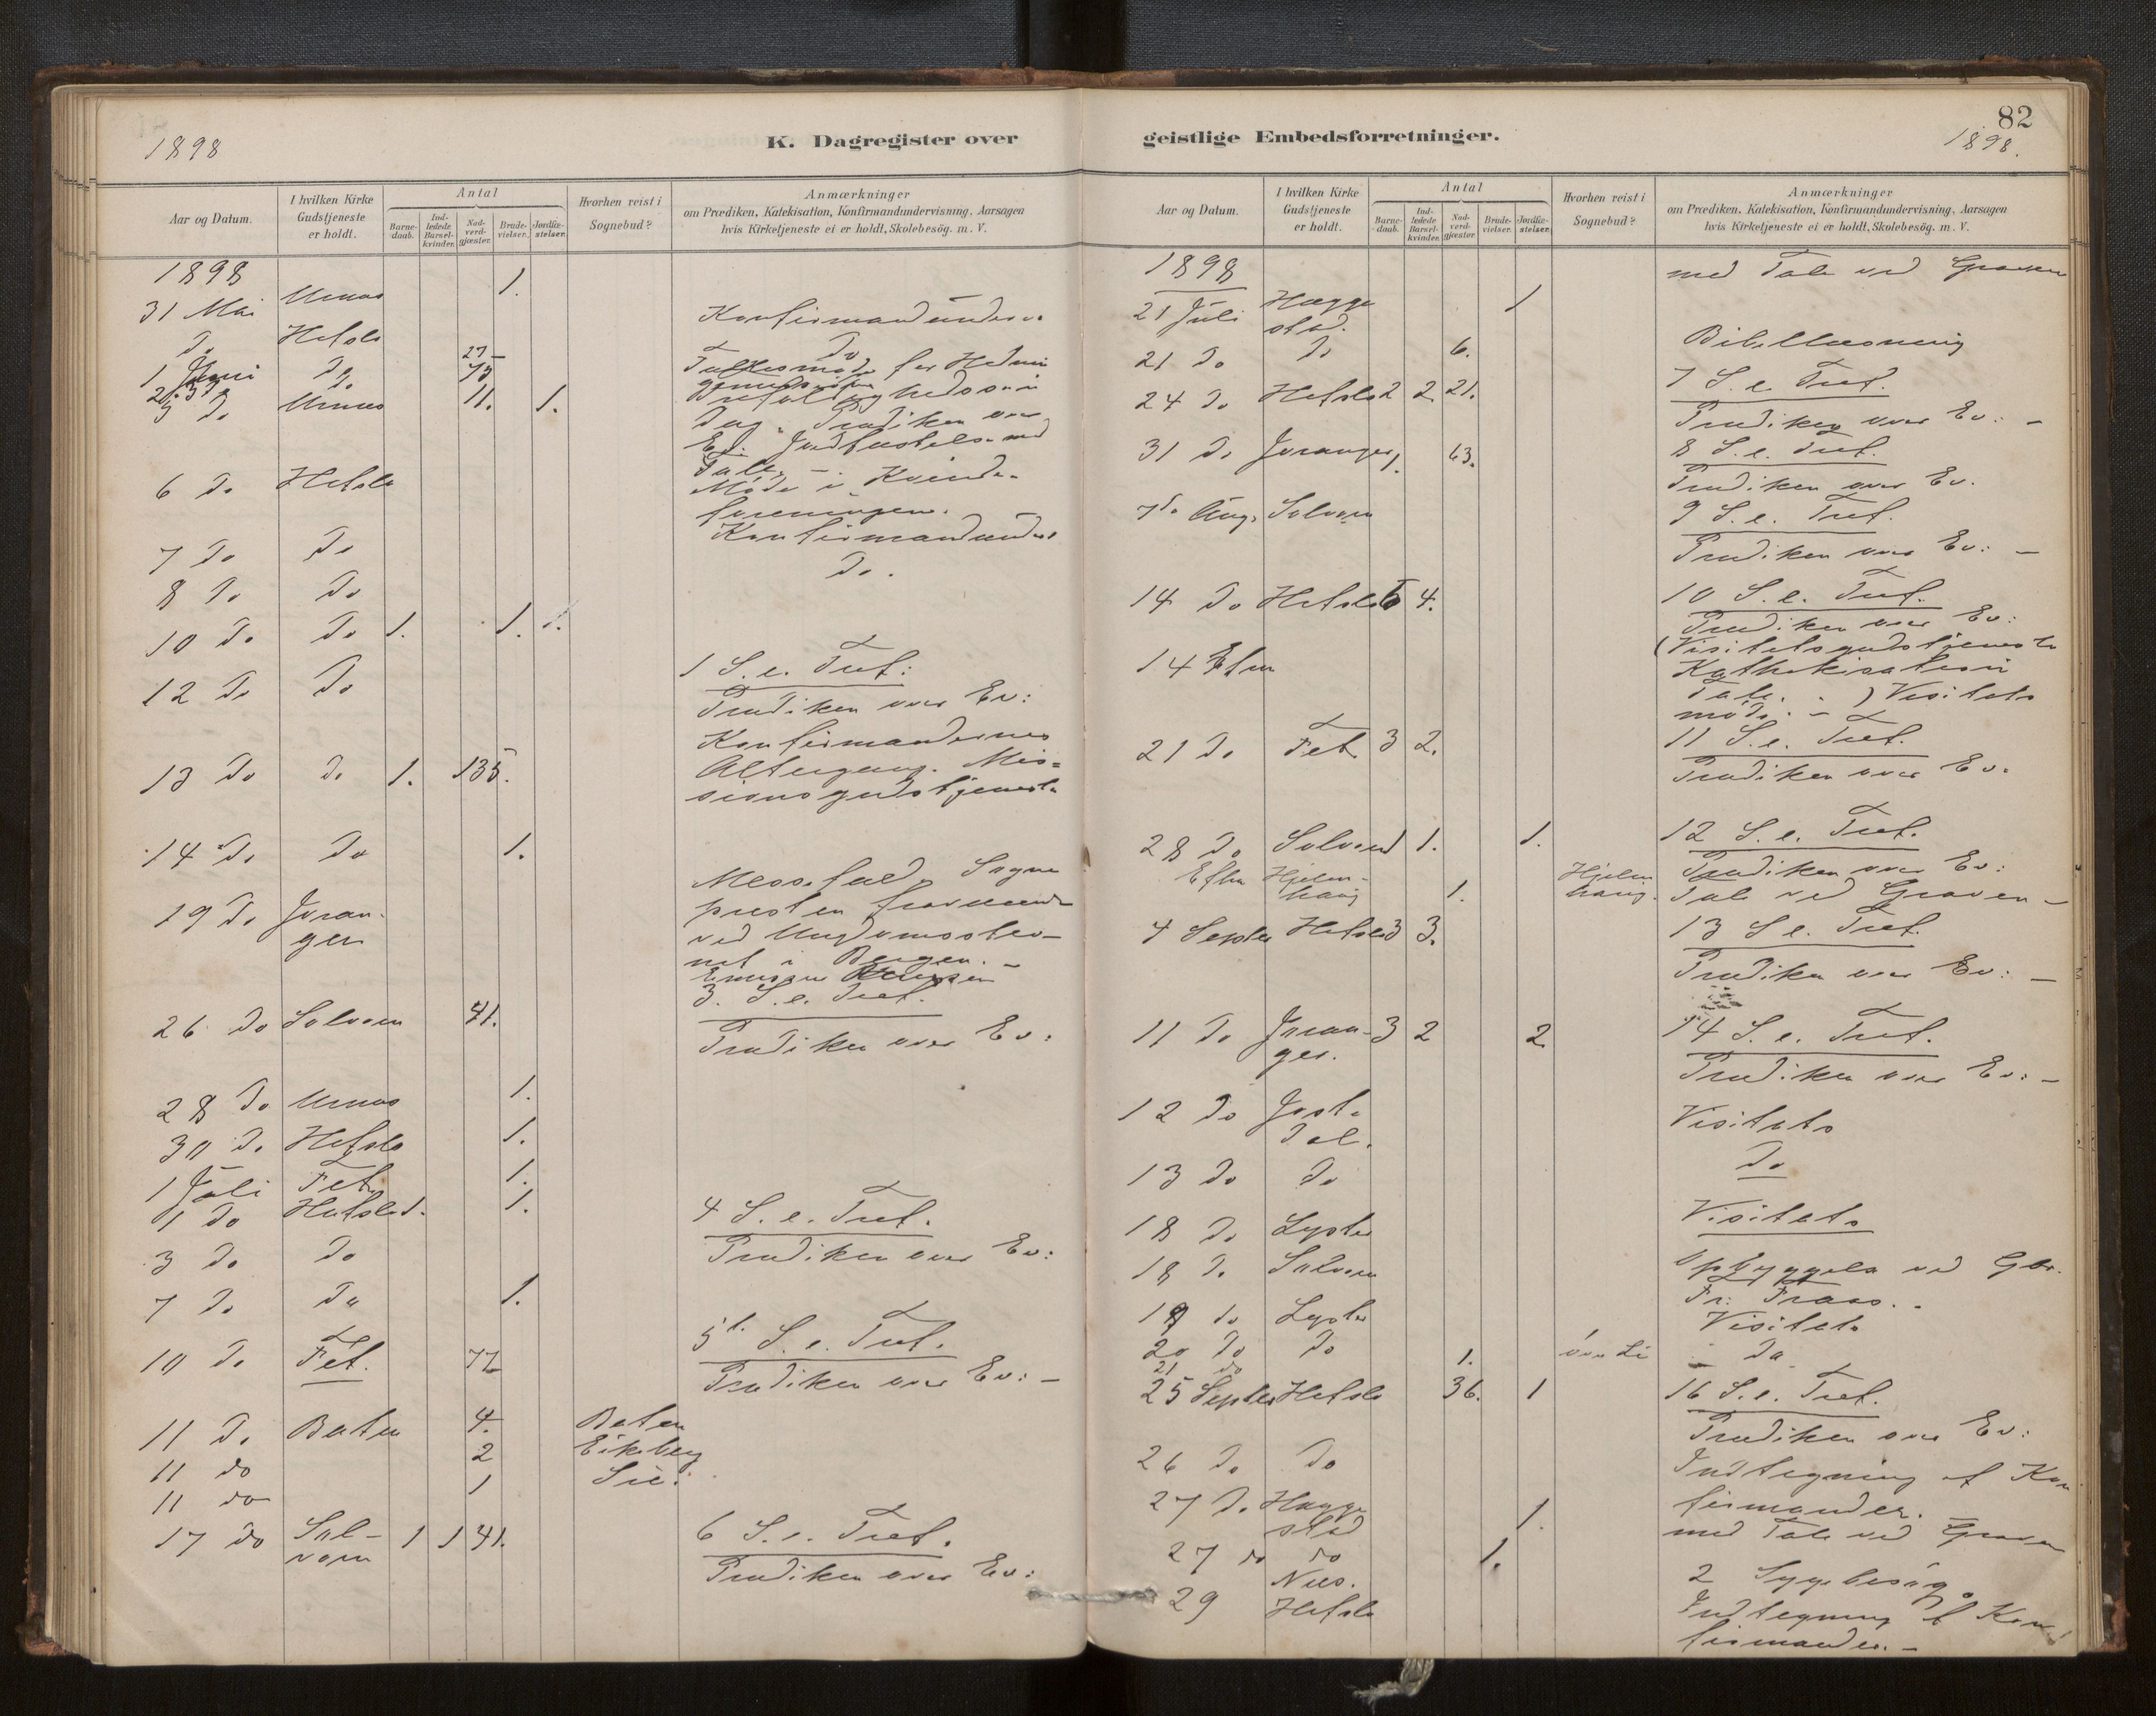 1898
K. Dagregister over
Aar og Datum.
I hvilken Kirke Gudstjeneste er holdt.
Antal
Barne-daab.
Ind-ledede Barsel-kvinder.
Nad-verd-gjæster.
Brude-vielser.
Jordfæ-stelser.
Hvorhen reist i Sognebud?
Anmærkninger
om Prædiken, Katekisation, Konfirmandundervisning, Aarsagen
hvis Kirketjeneste ei er holdt, Skolebesög. m. V.
1898
31 Mai Urnes 1.
do Hafslo Konfirmandunderv.
1 Juni do do
5 do Urnes 11. 1.
Dag. Prædiken over
Tale. –
6 do Hafslo Møde i Kvinde-
foreningen.
7 do do Konfirmandunder
8 do do do.
10 do do 1. 1. 1.
12 do do 1 S. e. Tref:
Prædiken over Ev:
13 do do 1. 135. Konfirmandernes
Altergang. Mis=
sionsgudstjeneste
14 do do 1.
19 do Joran-
ger Messefald, Sogne
presten fraværende
ved Ungdomsstev-
net i Bergen. –
26 do Solvorn 41. 3. S. e. Tref.
Prædiken over Ev:
28 do Urnes 1.
30 do Hafslo 1.
1 Juli Fet 1.
1 do Hafslo 1.
3 do do 4 S. e. Tref.
Prædiken over Ev:
7 do do 1.
10 do Fet. 77 5te S. e. Tref.
Prædiken over Ev: –
11 do 4. 
11 do 2 Eikeberg
11 do 1
17 do Sol-
vorn 1 1 41. 6 S. e. Tref.
Prædiken over Ev:
82
1898.
geistlige Embedsforretninger.
Aar og Datum.
I hvilken Kirke Gudstjeneste er holdt.
Antal
Barne-daab.
Ind-ledede Barsel-kvinder.
Nad-verd-gjæster.
Brude-vielser.
Jordfæ-stelser.
Hvorhen reist i Sognebud?
Anmærkninger
om Prædiken, Katekisation, Konfirmandundervisning, Aarsagen
hvis Kirketjeneste ei er holdt, Skolebesög. m. V.
1898
21 Juli Hægge
stad. 1 med Tale ved Graven
21 do do 6. Bibellæsning
24 do Hafslo 2 2 21. 7 S. e. Tref.
Prædiken over Ev: –
31 do Joranger 1. 63. 8 S. e. Tref.
Prædiken over Ev.
7de Aug. Solvorn 9 S. e. Tref.
Prædiken over Ev: –
14 do Hafslo 4. 10 S. e. Tref.
Prædiken over Ev:
(Visitatsgudstjeneste
Kathekisation
14 Efm Tale. ) Visitats
møde. –
21 do Fet 3 2. 11 S. e. Tref.
Prædiken over Ev.
28 do Solvorn 1 1. 1. 12 S. e. Tref.
Prædiken over Ev:
Efm Hjelm-
haug 1. Hjelm
haug. Tale ved Graven –
4 Septbr Hafslo 3 3. 13 S e. Tref.
Prædiken over Ev: –
11 do Joran-
ger. 3 2 2. 14 S. e. Tref.
Prædiken over Ev: –
12 do Jost-
dal. Visitats
13 do do do
18 do Lyster Visitats
18 do Solvorn Opbyggelse ved
19 do Lyster Visitats
20 do do 1. do
21 do
25 Septbr Hafslo 36. 1 16 S. e. Tref.
Prædiken over Ev:
26 do do Indtegning af Kon
firmander.
27 do Hægge
stad 1. med Tale ved Graven
27 do do 1.
Nes. 2 Sygebesög
29 Hafslo Indtegning af Kon
firmander. –